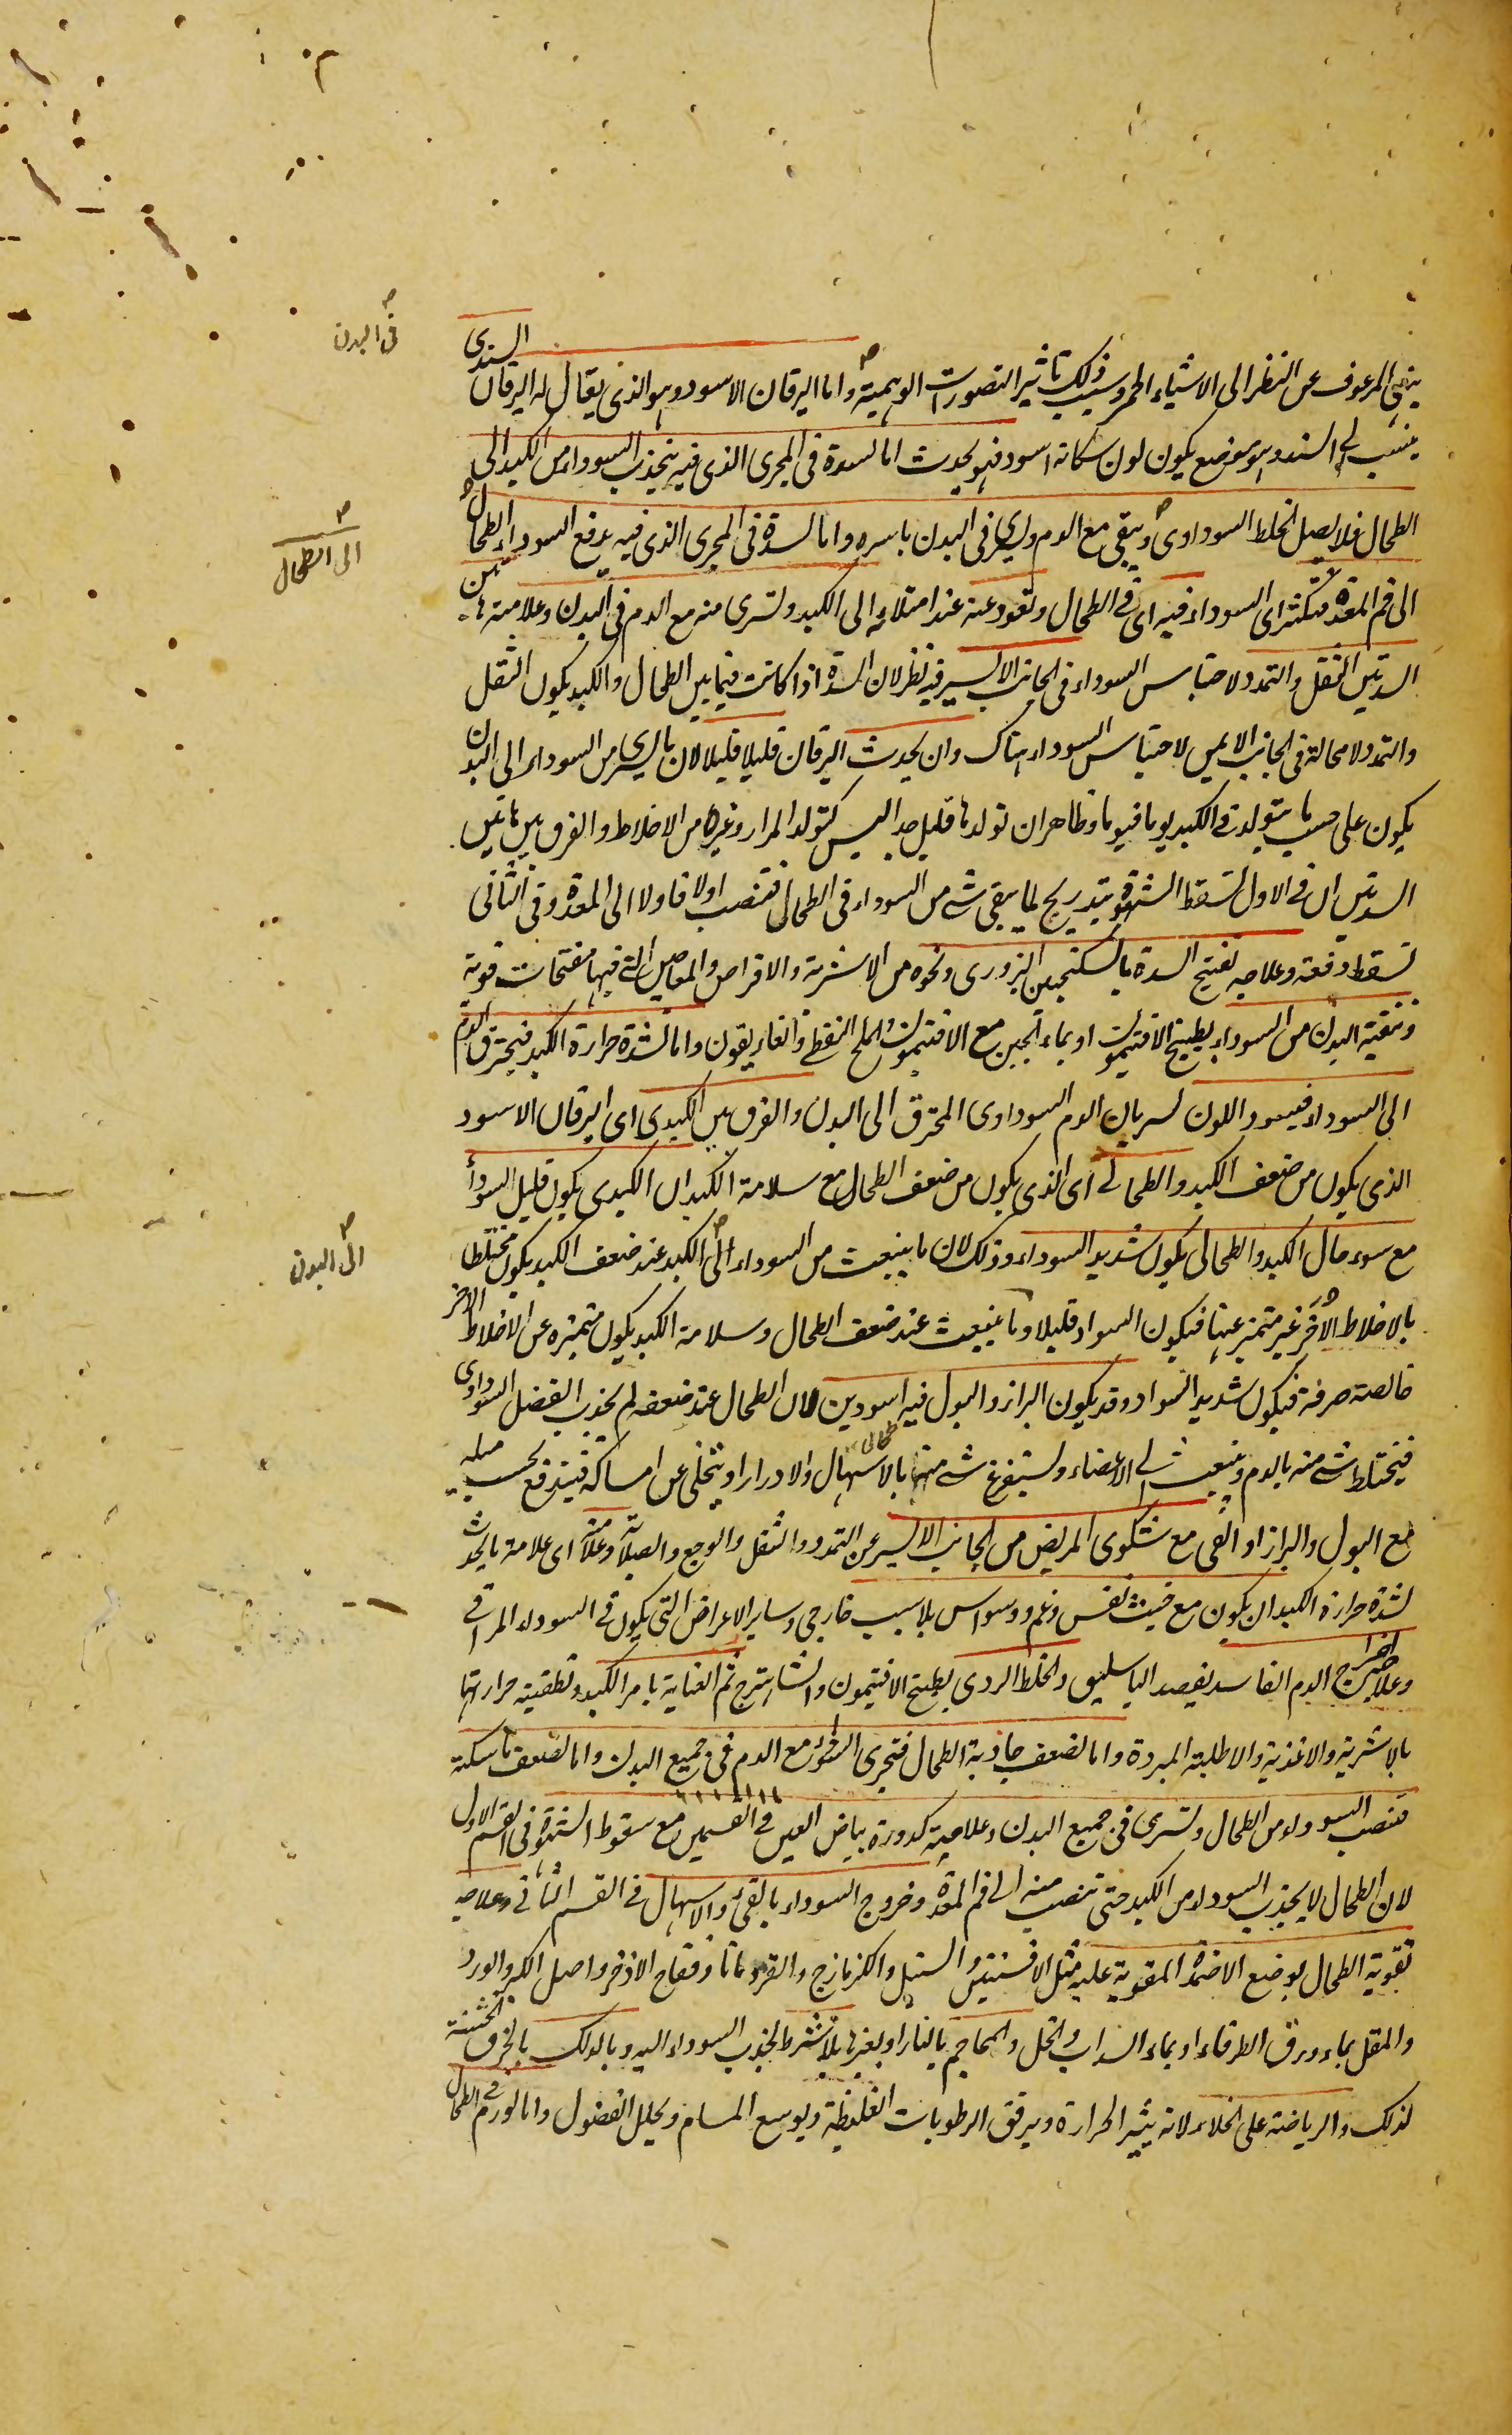 في البدن
ينهى المرعوف عن النظر الى الاشياء الحمر وسبب ذلك تاثير التصورات الوهمية واما اليرقان الاسود وهو الذى يقال له اليرقان السندى
ينسب الى السند وهو موضع يكون لون سكانه اسود فهو يحدث اما لسدة فى المجرى الذى فيه ينجذب السوداء من الكبد الى
الطحال فلا يصل الخلط السوداوى ويبقى مع الدم ويسرى فى البدن باسره واما لسدة فى المجرى الذى فيه يدفع السوداء الطحال
الى الطحال
الى فم المعدة فيكثر اى السوداء فيه اى فى الطحال وتعود عنه عند امتلائه الى الكبد وتسرى منه مع الدم فى البدن وعلامة هاتين
السدتين الثقل والتمدد لاحتباس السوداء فى الجانب الايسر فيه نظر لان السدة اذا كانت فيما بين الطحال والكبد يكون الثقل
والتمدد لا محالة فى الجانب الايمن لاحتباس السوداء هناك وان يحدث اليرقان قليلا قليلا لان ما يسرى من السوداء الى البدن
يكون على حسب ما يتولد فى الكبد يوما فيوما وظاهر ان تولدها قليل جدا ليس كتولد المرار وغيرها من الاخلاط والفرق بين هاتين
السدتين ان فى الاول تسقط الشهوة بتدريج لما يبقى شئ من السوداء فى الطحال فتنصب اولا فاولا الى المعدة وفى الثانى
تسقط دفعة وعلاجه تفتيح السدة بالسكنجبين البزورى ونحوه من الاشربة والاقراص والمعاجين التى فيها مفتحات قوية
وتنقية البدن من السوداء بطبيخ الافتيمون او بماء الجبن مع الافتيمون والملح النفطى والغاريقون واما لشدة حرارة الكبد فيحترق الدم
الى السوداء فيسود اللون لسريان الدم السوداوى المحترق الى البدن والفرق بين الكبدى اى اليرقان الاسود
الذى يكون من ضعف الكبد والطحالى اى الذى يكون من ضعف الطحال مع سلامة الكبد ان الكبدى يكون قليل السواد
مع سوء حال الكبد والطحالى يكون شديد السواد وذلك لان ما ينبعث من السوداء الى الكبد عند ضعف الكبد يكون مختلطا
الى البدن
بالاخلاط الاخر غير متميز عنها فيكون السواد قليلا وما ينبعث عند ضعف الطحال وسلامة الكبد يكون متميزه عن الاخلاط الاخر
خالصة صرفة فيكون شديد السواد وقد يكون البراز والبول فيه اسودين لان الطحال عند ضعفه لم يجذب الفضل السوداوى
فيختلط شئ منه بالدم وينبعث الى الاعضاء ويستفرغ شئ منها بالاسهال والادرار او يتخلى عن امساكه فيندفع بحسب ميله
مع البول والبراز او القى مع شكوى المريض من الجانب الايسر عن التمدد والثقل والوجع والصلابة وعلامته اى علامة ما يحدث
لشدة حرارة الكبد ان يكون مع خبث نفس وغم ووسواس بلا سبب خارجى وساير الاعراض التى يكون فى السوداء المراقى
وعلاجه اخراج الدم الفاسد بفصد الباسليق والخلط الردى بطبيخ الافتيمون والشاهترج ثم العناية بامر الكبد وتطفية حرارتها
بالاشربة والاغذية والاطلية المبردة واما لضعف جاذبة الطحال فتجرى السوداء مع الدم فى جميع البدن واما لضعف ماسكته
فتنصب السوداء من الطحال وتسرى فى جميع البدن وعلامته كدورة بياض العين فى القسمين مع سقوط الشهوة فى القسم الاول
لان الطحال لا يجذب السوداء من الكبد حتى تنصب منه الى فم المعدة وخروج السوداء بالقى والاسهال فى القسم الثانى وعلاجه
تقوية الطحال بوضع الاضمدة المقوية عليه مثل الافسنتين والسنبل والكزمازج والقردمانا وفقاح الاذخر واصل الكبر والورد
والمقل بماء ورق الطرفاء او بماء السداب والخل والمحاجم بالنار او بغيرها بلا شرط لجذب السوداء اليه وبالدلك بالخرق الخشنة
لذلك والرياضة على الخلاء لانه يثير الحرارة ويرقق الرطوبات الغليظة ويوسع المسام ويحلل الفضول واما لورم فى الطحال